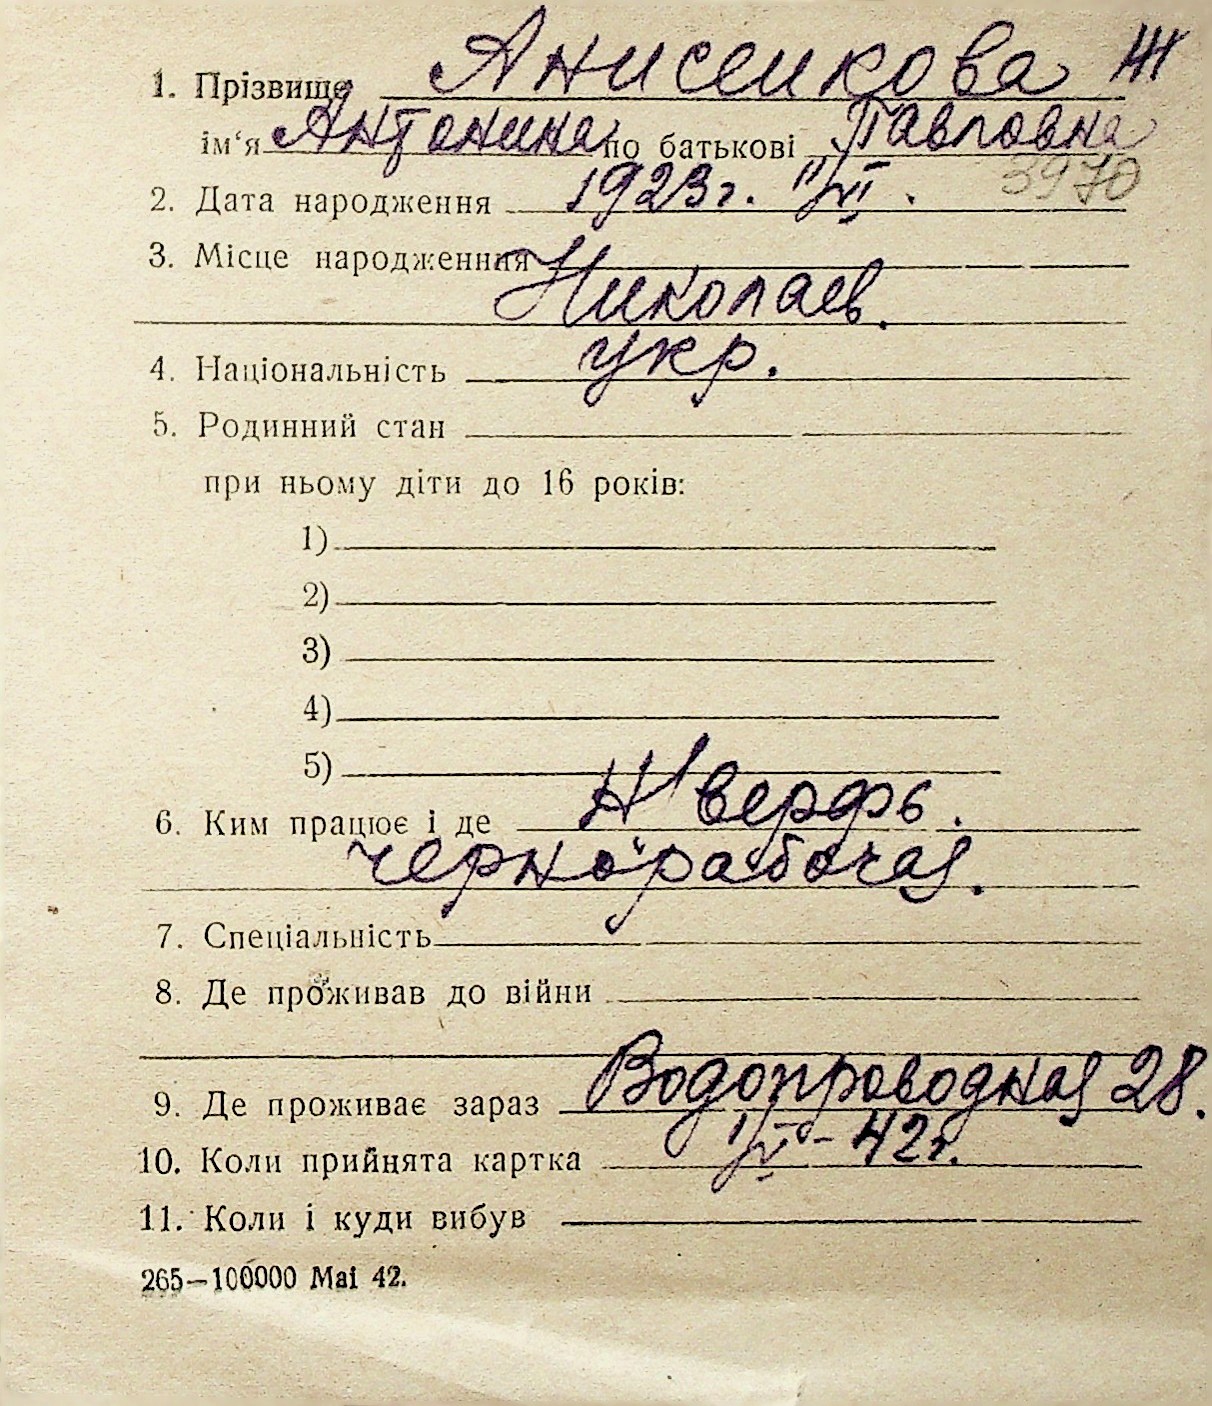 1. Прізвище Анисенкова Ж
ім‘я Антонина по батькові Павловна
2. Дата народження 1923г. 11/VI. 3970
3. Місце народженння
Николаев.
4. Національність укр.
5. Родинний стан
при ньому діти до 16 років:
1)
2)
3)
4)
5)
6. Ким працює і де верфь.
чернорабочая.
7. Спеціальність
8. Де проживав до війни
9. Де проживає зараз Водопроводная 28.
10. Коли прийнята картка 42г.
11. Коли і куди вибув
265—100000 Mai 42.